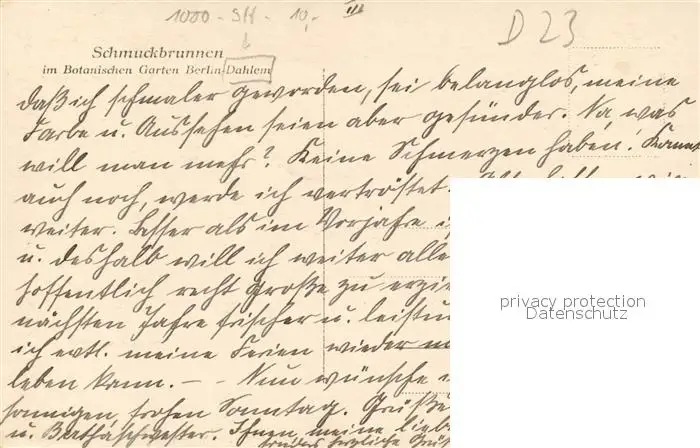 1000 - SH - 10,-
D 23
Schmuckbrunnen
im Botanischen Garten Berlin-Dahlem
daß ich schmaler geworden, sei belanglos, meine
Farbe u. Aussehen seien aber gesünder. Na, was
will man mehr? Keine Schmerzen haben! Kommt
auch noch, werde ich vertröstet.
weiter. Besser als im Vorjahre
u. deshalb will ich weiter alle
hoffentlich recht große zu
nächsten Jahre frischer u.
ich evtl. meine Ferien wieder
leben kann. - - Nun wünsche
sonnigen, frohen Sonntag. Grüße
u. Berthaschwester. Ihnen, meine
herzliche
privacy protection
Datenschutz